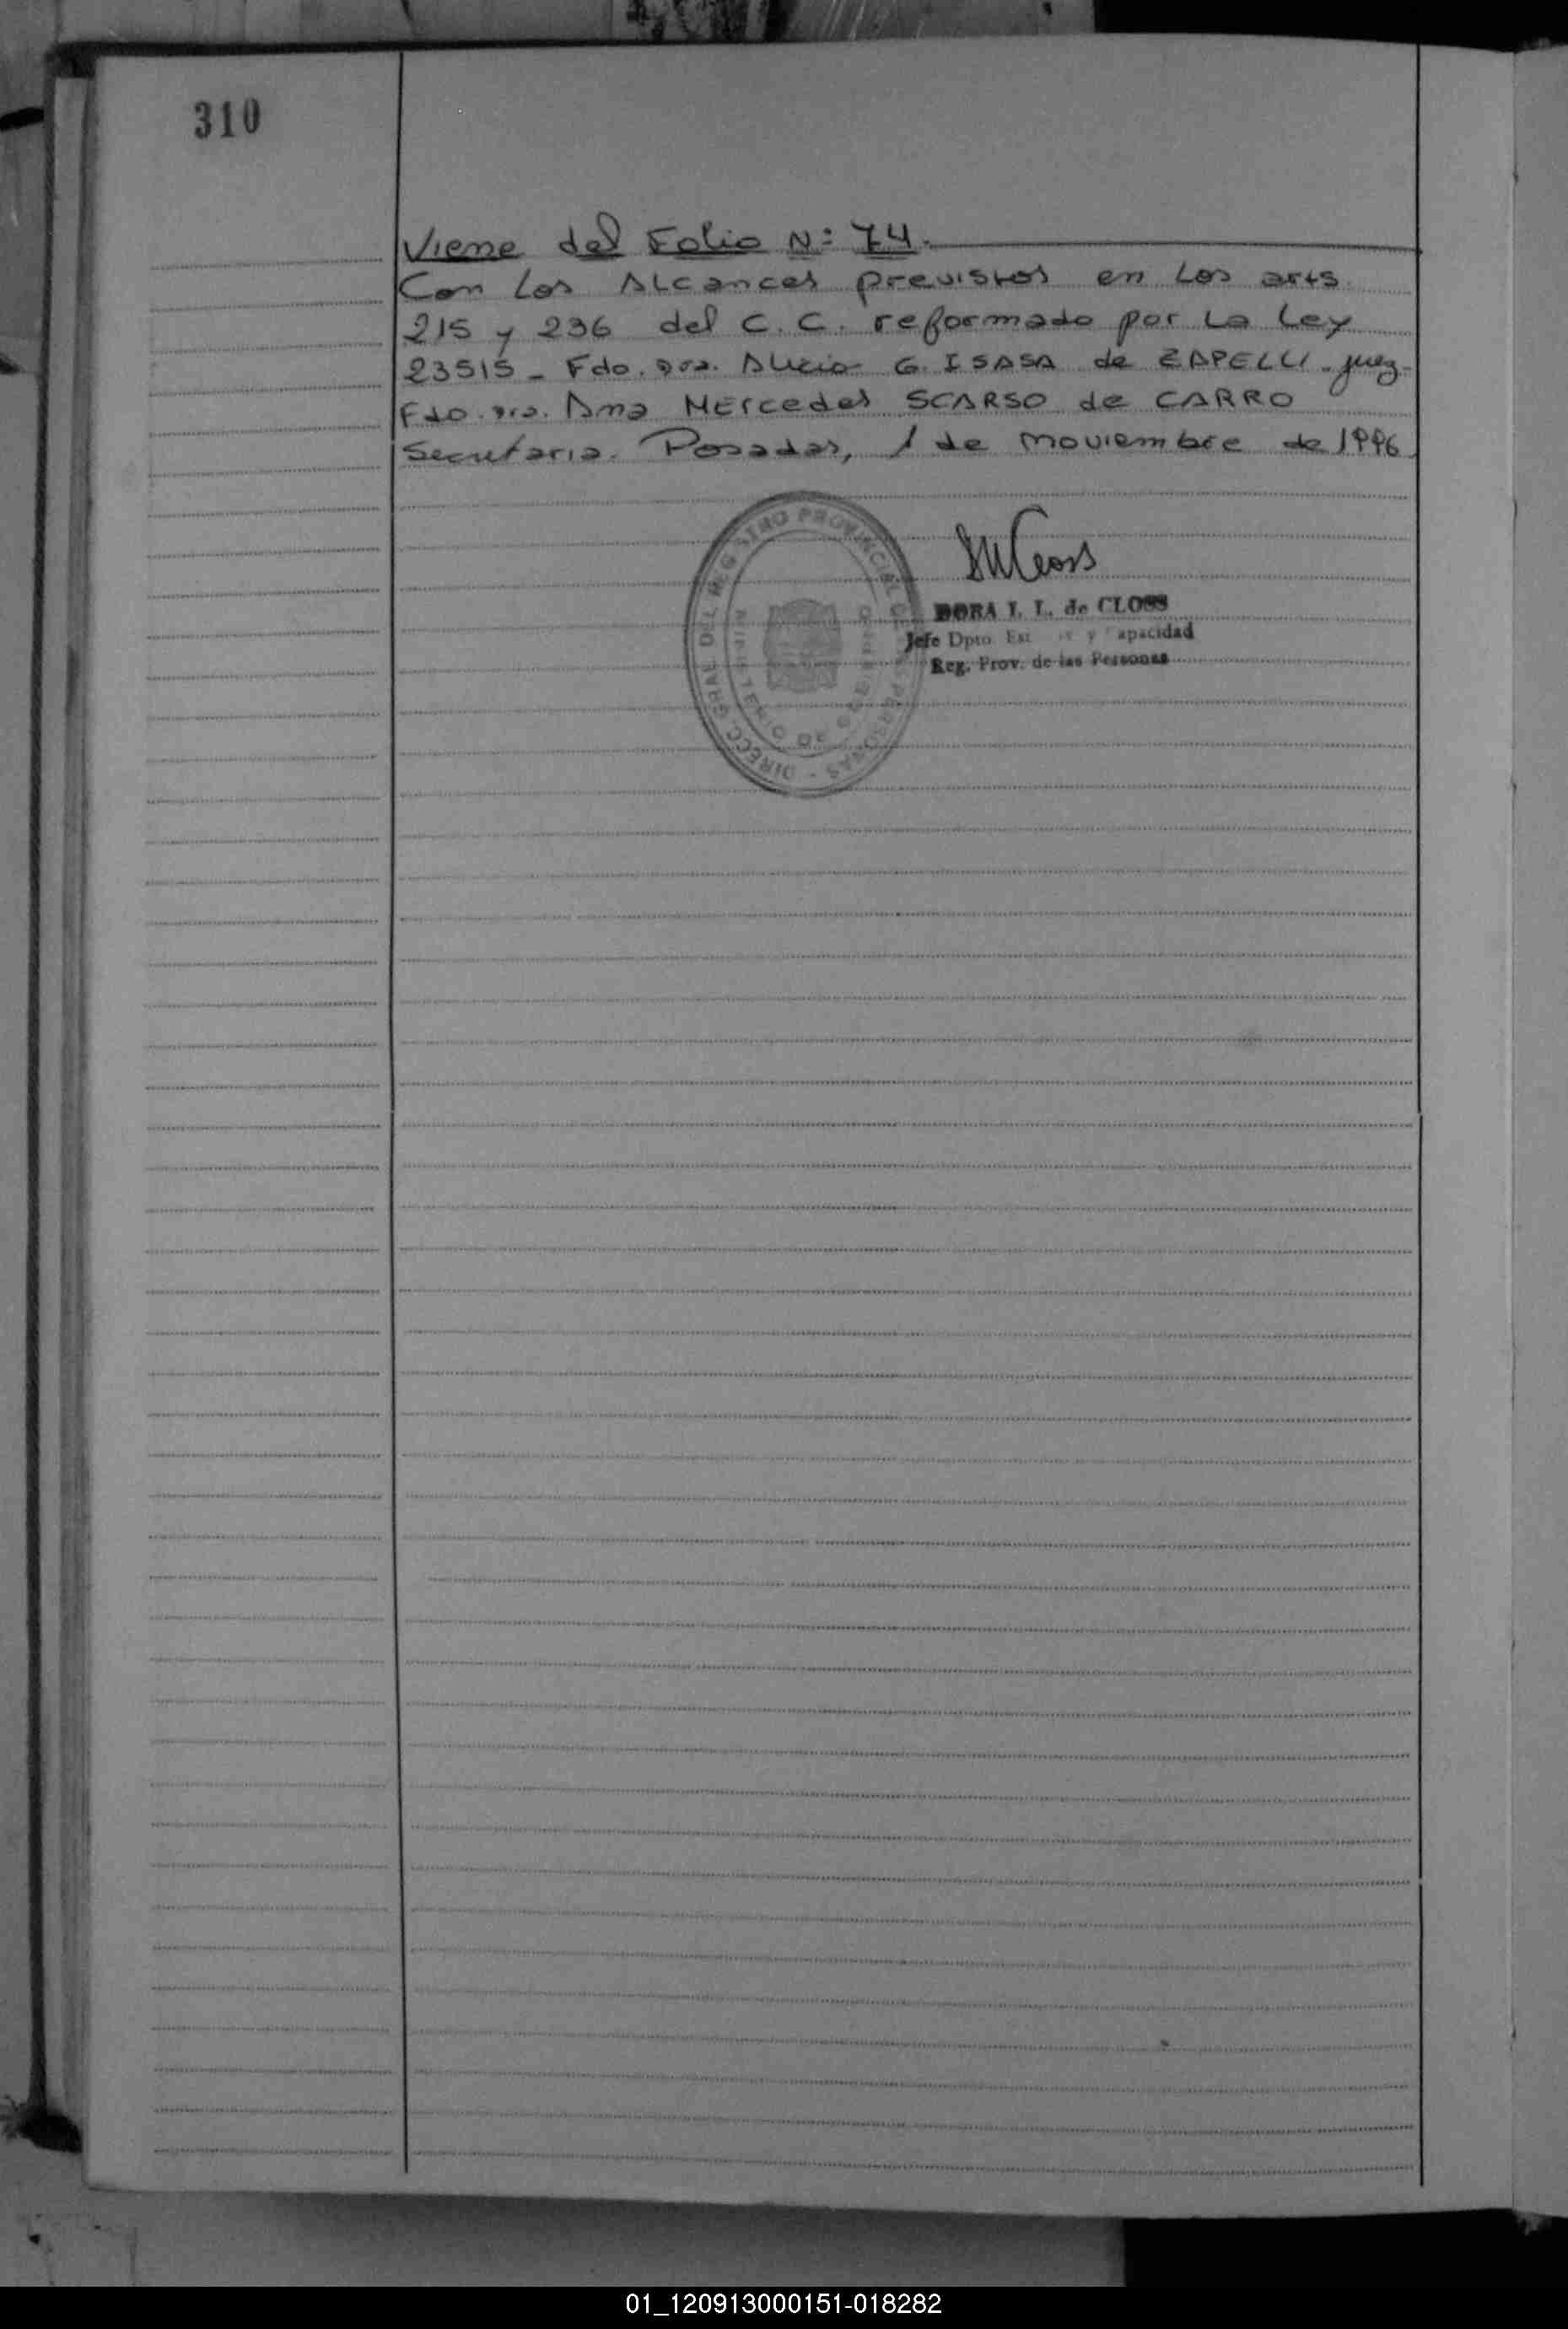 310
Viene del Folio N: 74.
Con Los Alcances previstos en Los arts.
215 y 236 del C. C. reformado por La Ley
23515 - Fdo. Dra. Alicia G. ISASA de ZAPELLI - juez -
Fdo. Dra. Ana MErcedes SCARSO de CARRO
Secretaria. Posadas, 1 de noviembre de 1996.
DIRECC. GRAL DEL REGISTRO PROVINCIAL DE LAS PERSONAS -
MINISTERIO DE GOBIERNO
DORA I. L. de CLOSS
Jefe Dpto. Est y apacidad
Reg. Prov. de las Personas
01_120913000151-018282